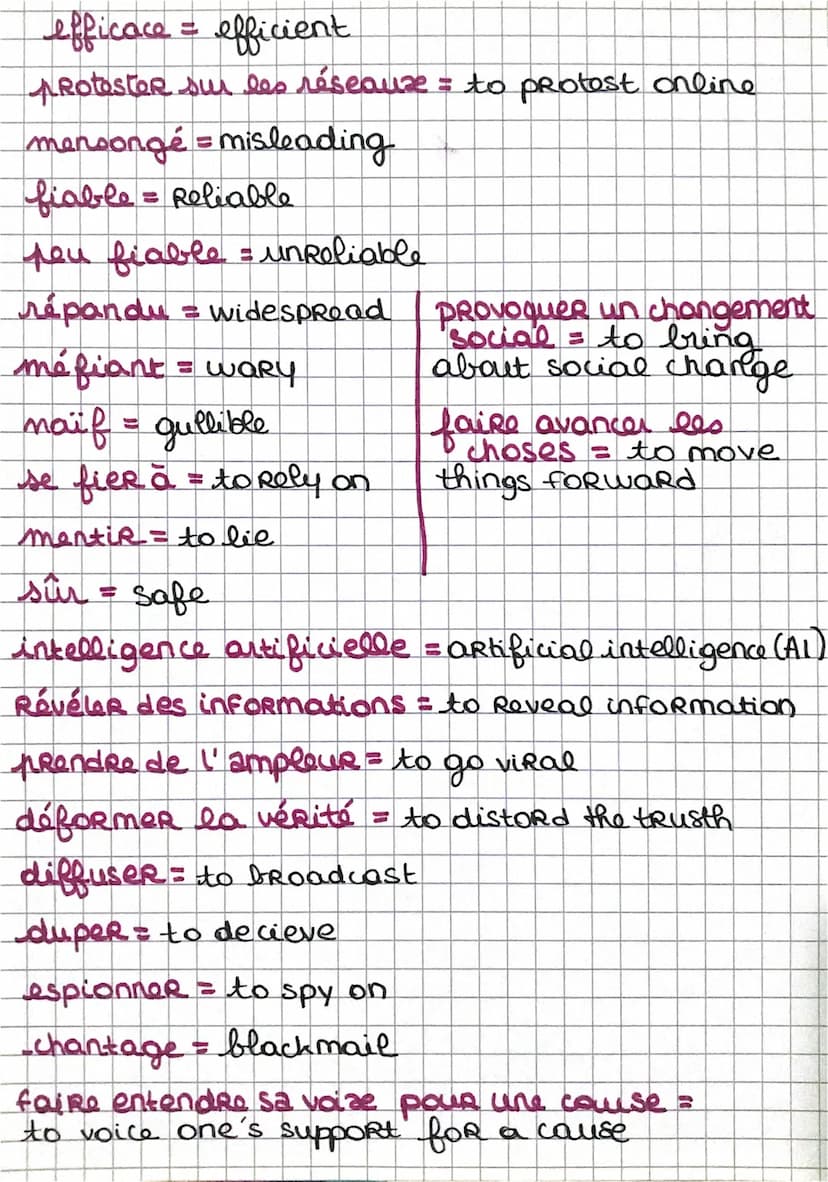 efficace = efficient
protester sur les réseaux = to protest online
mensongé = misleading
fiable = Reliable
peu fiable = unreliable
répandu = widespread
méfiant = wary
naïf = gullible
se fier à = to rely on
mentir = to lie
provoquer un changement
social = to bring
about social change
faire avancer les
choses = to move
things forward
sûr = safe
intelligence artificielle = artificial intelligence (AI)
Révéler des informations = to reveal information
prendre de l'ampleur = to go viral
déformer la vérité = to distord the trusth
diffuser = to broadcast
duper = to decieve
espionner = to spy on
chantage = blackmail
faire entendre sa voix pour une cause =
to voice one's support for a cause